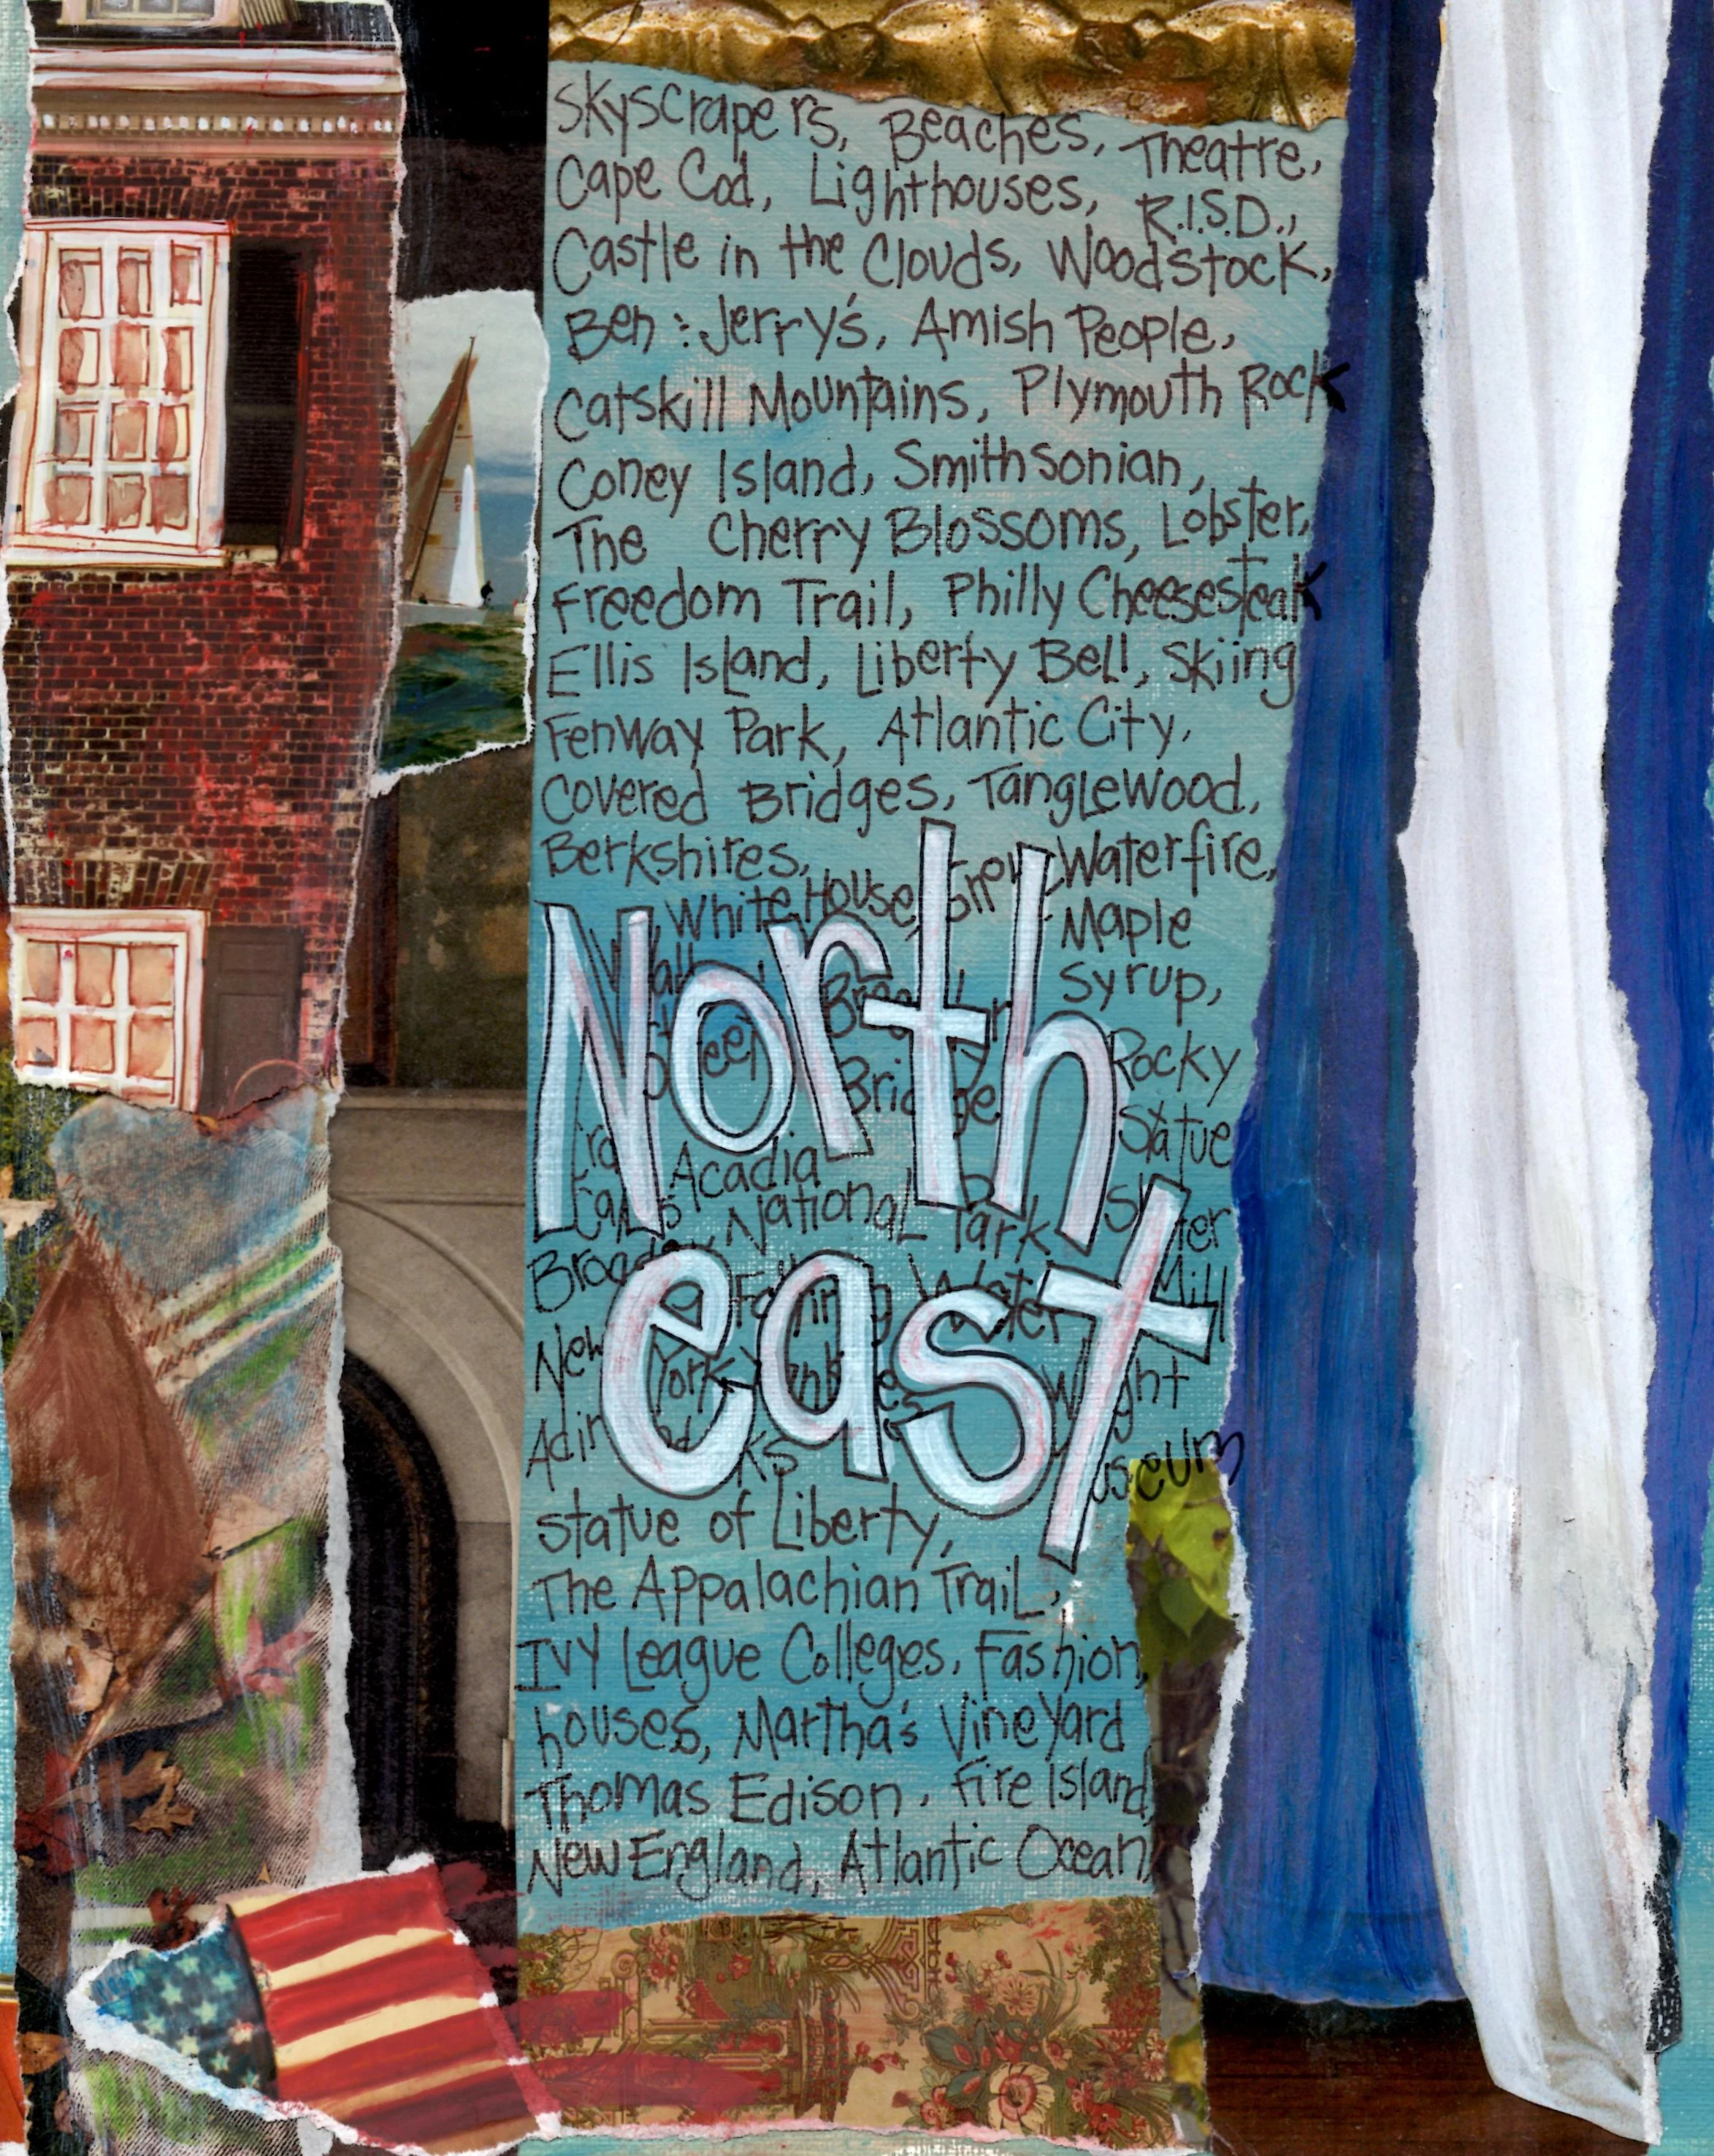 Skyscrapers, Beaches, Theatre,
Cape Cod, Lighthouses, R.I.S.D.,
Castle in the Clouds, Woodstock,
Ben & Jerry's, Amish People,
Catskill Mountains, Plymouth Rock
Coney Island, Smithsonian,
The Cherry Blossoms, Lobster,
Freedom Trail, Philly Cheesesteak
Ellis Island, Liberty Bell, Skiing
Fenway Park, Atlantic City,
Covered Bridges, Tanglewood,
Berkshires, Waterfire,
White House, Maple
Syrup,
Rocky
Statue
Acadia
National Park
Mill
New York
Museum
North
east
Statue of Liberty,
The Appalachian Trail,
Ivy League Colleges, Fashion,
houses, Martha's Vineyard
Thomas Edison, Fire Island,
New England, Atlantic Ocean,